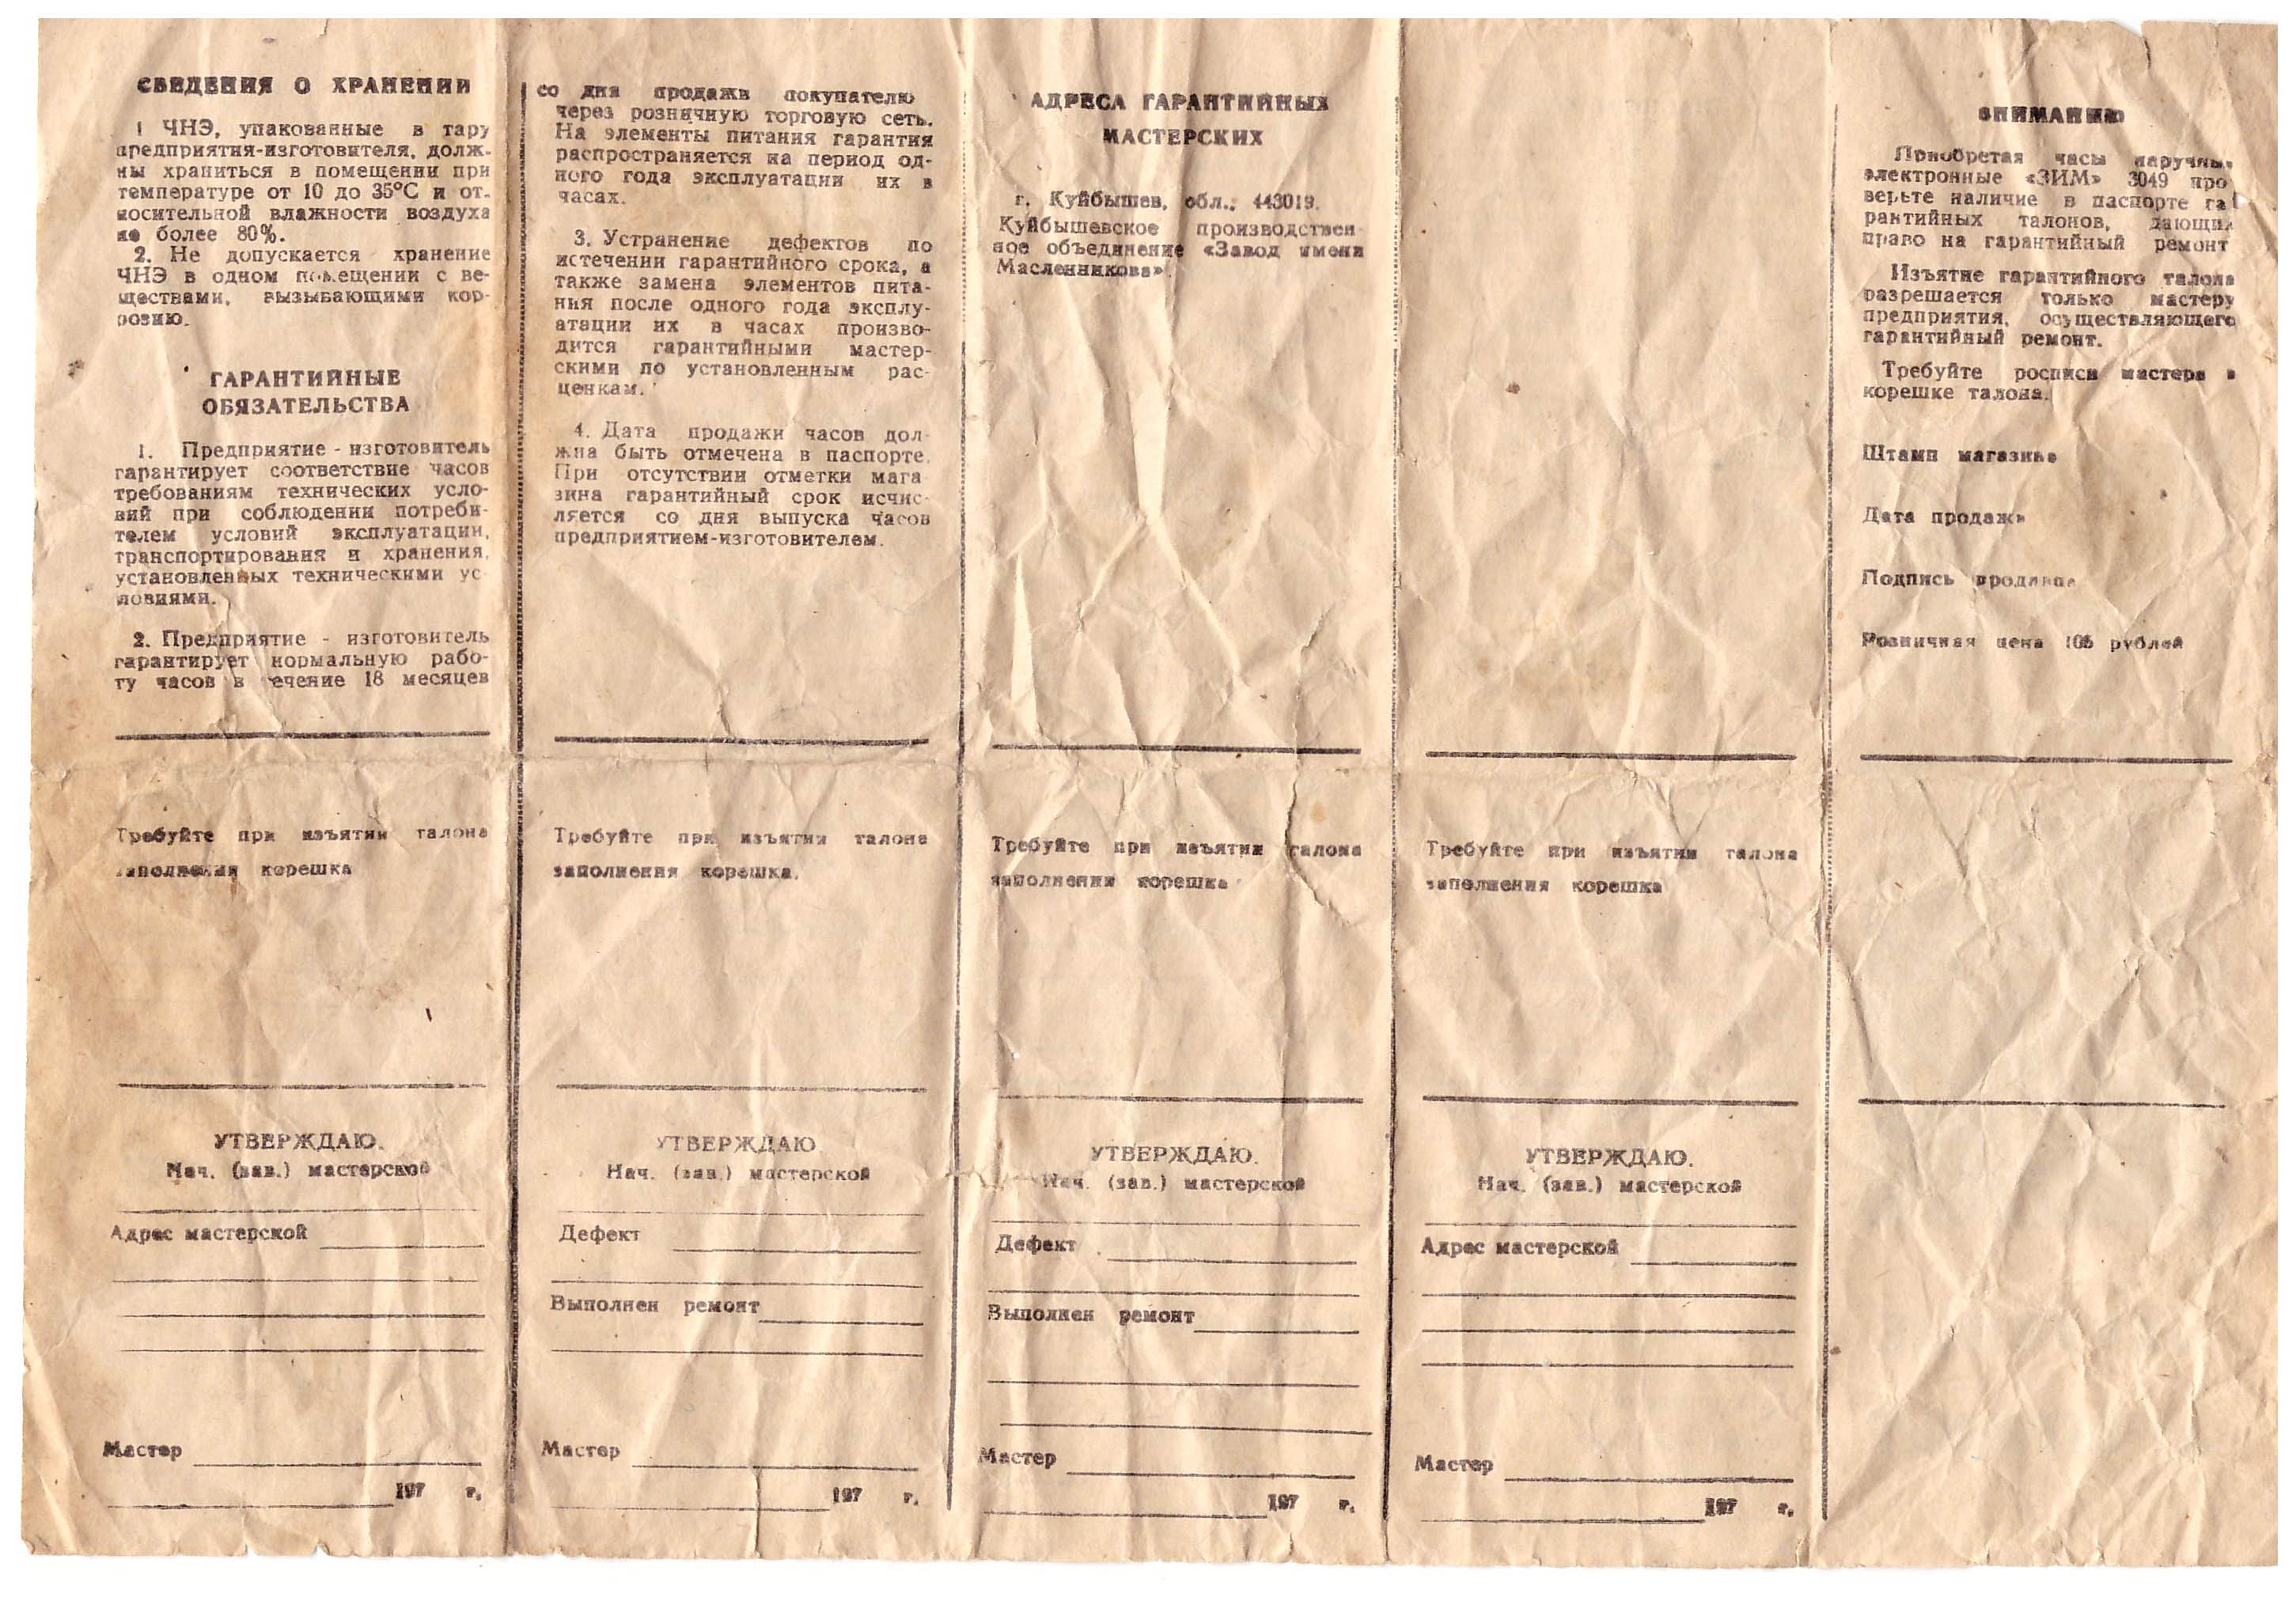 СВЕДЕНИЯ О ХРАНЕНИИ
1 ЧНЭ, упакованные в тару
предприятия-изготовителя, долж-
ны храниться в помещении при
температуре от 10 до 35°С и от-
носительной влажности воздуха
не более 80%.
2. Не допускается хранение
ЧНЭ в одном помещении с ве-
ществами, вызывающими кор-
розию.
ГАРАНТИЙНЫЕ
ОБЯЗАТЕЛЬСТВА
1. Предприятие - изготовитель
гарантирует соответствие часов
требованиям технических усло-
вий при соблюдении потреби-
телем условий эксплуатации,
транспортирования и хранения,
установленных техническими ус
ловиями.
2. Предприятие - изготовитель
гарантирует нормальную рабо-
ту часов в течение 18 месяцев
Требуйте при изъятии талона
заполнения корешка
УТВЕРЖДАЮ.
Нач. (зав.) мастерской
Адрес мастерской
Мастер
197 г.
со дня продажи покупателю
через розничную торговую сеть.
На элементы питания гарантия
распространяется на период од-
ного года эксплуатации их в
часах.
3. Устранение дефектов по
истечении гарантийного срока, а
также замена элементов пита-
ния после одного года эксплу-
атации их в часах произво-
дится гарантийными мастер-
скими по установленным рас-
ценкам.
4. Дата продажи часов дол-
жна быть отмечена в паспорте.
При отсутствии отметки мага
зина гарантийный срок исчис-
ляется со дня выпуска часов
предприятием-изготовителем.
Требуйте при изъятии талона
заполнения корешка.
УТВЕРЖДАЮ
Нач. (зав.) мастерской
Дефект
Выполнен ремонт
Мастер
197 г.
АДРЕСА ГАРАНТИЙНЫХ
МАСТЕРСКИХ
г. Куйбышев, обл., 443019.
Куйбышевское производствен
ное объединение «Завод имени
Масленникова».
Требуйте при изъятии талона
заполнения корешка
УТВЕРЖДАЮ.
Нач. (зав.) мастерской
Дефект
Выполнен ремонт
Мастер
197 г.
Требуйте при изъятии талона
заполнения корешка
УТВЕРЖДАЮ.
Нач. (зав.) мастерской
Адрес мастерской
Мастер
197 г.
ВНИМАНИЮ
Приобретая часы наручные
электронные «ЗИМ» 3049 про
верьте наличие в паспорте га
рантийных талонов, дающих
право на гарантийный ремонт
Изъятие гарантийного талона
разрешается только мастеру
предприятия, осуществляющего
гарантийный ремонт.
Требуйте росписи мастера в
корешке талона.
Штамп магазина
Дата продажи
Подпись продавца
Розничная цена 105 рублей